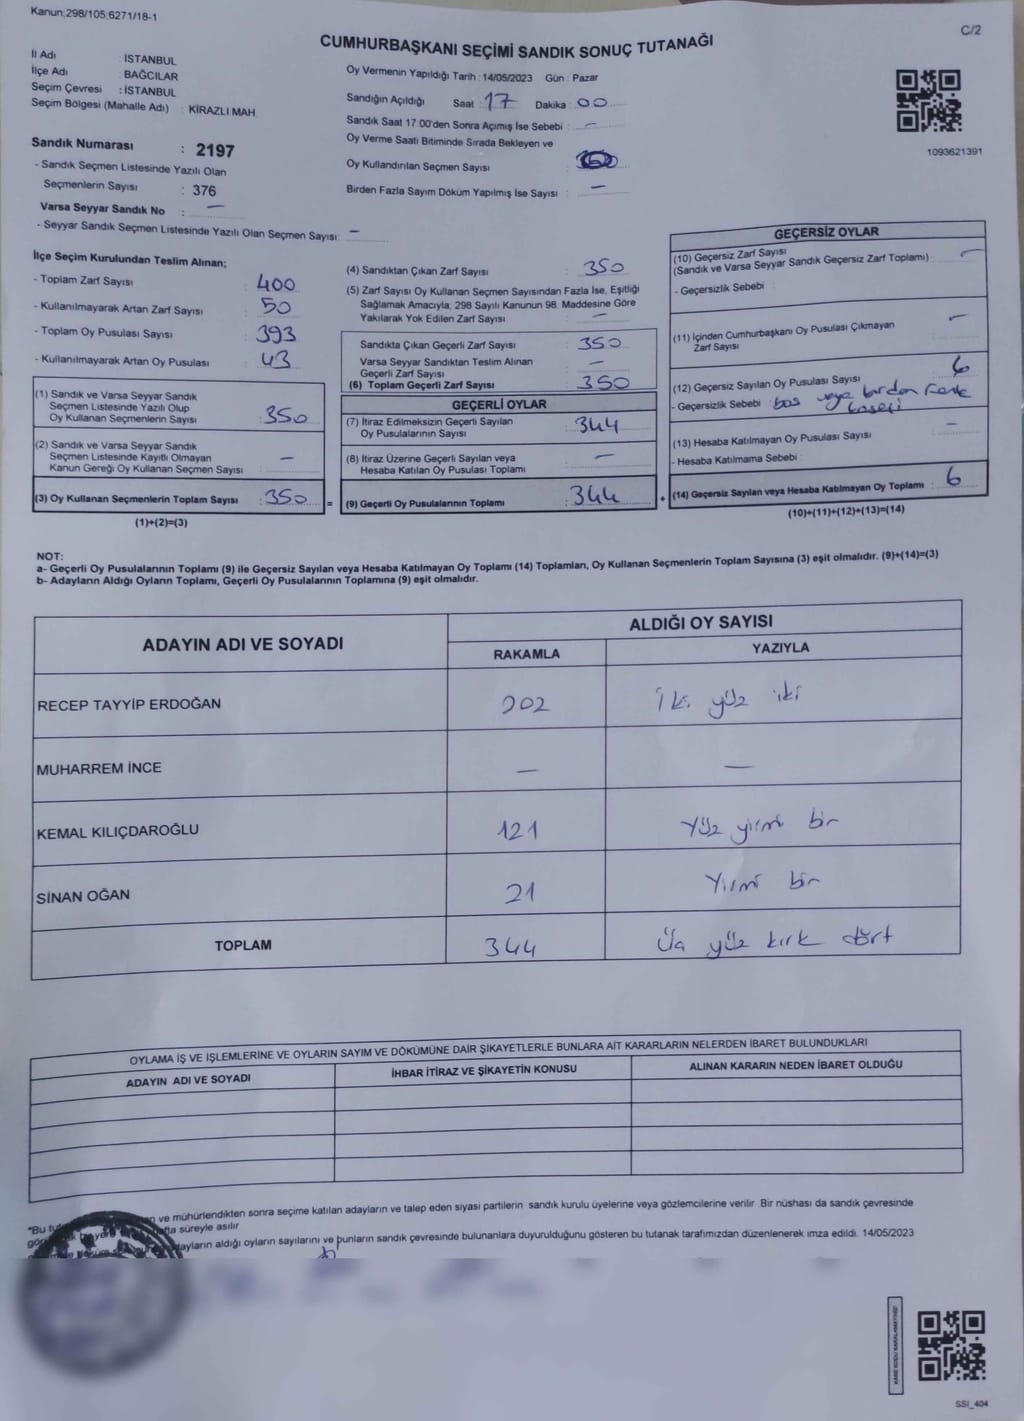 Kanun;298/105;6271/18-1
C/2
CUMHURBAŞKANI SEÇİMİ SANDIK SONUÇ TUTANAĞI
İl Adı : İSTANBUL
İlçe Adı : BAĞCILAR
Seçim Çevresi : İSTANBUL
Seçim Bölgesi (Mahalle Adı) : KİRAZLI MAH.
Oy Vermenin Yapıldığı Tarih : 14/05/2023 Gün : Pazar
Sandığın Açıldığı Saat : 17 Dakika : 00
Sandık Saat 17:00'den Sonra Açılmış İse Sebebi : —
Oy Verme Saati Bitiminde Sırada Bekleyen ve
Oy Kullandırılan Seçmen Sayısı :
Birden Fazla Sayım Döküm Yapılmış İse Sayısı : —
1093621391
Sandık Numarası : 2197
- Sandık Seçmen Listesinde Yazılı Olan
Seçmenlerin Sayısı : 376
Varsa Seyyar Sandık No : —
- Seyyar Sandık Seçmen Listesinde Yazılı Olan Seçmen Sayısı: —
İlçe Seçim Kurulundan Teslim Alınan;
- Toplam Zarf Sayısı : 400
- Kullanılmayarak Artan Zarf Sayısı : 50
- Toplam Oy Pusulası Sayısı : 393
- Kullanılmayarak Artan Oy Pusulası : 43
(1) Sandık ve Varsa Seyyar Sandık
Seçmen Listesinde Yazılı Olup
Oy Kullanan Seçmenlerin Sayısı : 350
(2) Sandık ve Varsa Seyyar Sandık
Seçmen Listesinde Kayıtlı Olmayan
Kanun Gereği Oy Kullanan Seçmen Sayısı : —
(3) Oy Kullanan Seçmenlerin Toplam Sayısı : 350 =
(1)+(2)=(3)
(4) Sandıktan Çıkan Zarf Sayısı : 350
(5) Zarf Sayısı Oy Kullanan Seçmen Sayısından Fazla İse, Eşitliği
Sağlamak Amacıyla, 298 Sayılı Kanunun 98. Maddesine Göre
Yakılarak Yok Edilen Zarf Sayısı : —
Sandıkta Çıkan Geçerli Zarf Sayısı : 350
Varsa Seyyar Sandıktan Teslim Alınan
Geçerli Zarf Sayısı : —
(6) Toplam Geçerli Zarf Sayısı : 350
GEÇERLİ OYLAR
(7) İtiraz Edilmeksizin Geçerli Sayılan
Oy Pusulalarının Sayısı : 344
(8) İtiraz Üzerine Geçerli Sayılan veya
Hesaba Katılan Oy Pusulası Toplamı : —
(9) Geçerli Oy Pusulalarının Toplamı : 344 +
GEÇERSİZ OYLAR
(10) Geçersiz Zarf Sayısı
(Sandık ve Varsa Seyyar Sandık Geçersiz Zarf Toplamı) : —
- Geçersizlik Sebebi :
(11) İçinden Cumhurbaşkanı Oy Pusulası Çıkmayan
Zarf Sayısı : —
(12) Geçersiz Sayılan Oy Pusulası Sayısı : 6
- Geçersizlik Sebebi : boş veya birden fazla
(13) Hesaba Katılmayan Oy Pusulası Sayısı : —
- Hesaba Katılmama Sebebi :
(14) Geçersiz Sayılan veya Hesaba Katılmayan Oy Toplamı : 6
(10)+(11)+(12)+(13)=(14)
NOT:
a- Geçerli Oy Pusulalarının Toplamı (9) ile Geçersiz Sayılan veya Hesaba Katılmayan Oy Toplamı (14) Toplamları, Oy Kullanan Seçmenlerin Toplam Sayısına (3) eşit olmalıdır. (9)+(14)=(3)
b- Adayların Aldığı Oyların Toplamı, Geçerli Oy Pusulalarının Toplamına (9) eşit olmalıdır.
ADAYIN ADI VE SOYADI
ALDIĞI OY SAYISI
RAKAMLA YAZIYLA
RECEP TAYYİP ERDOĞAN 202 İki yüz iki
MUHARREM İNCE — —
KEMAL KILIÇDAROĞLU 121 Yüz yirmi bir
SİNAN OĞAN 21 Yirmi bir
TOPLAM 344 Üç yüz kırk dört
OYLAMA İŞ VE İŞLEMLERİNE VE OYLARIN SAYIM VE DÖKÜMÜNE DAİR ŞİKAYETLERLE BUNLARA AİT KARARLARIN NELERDEN İBARET BULUNDUKLARI
ADAYIN ADI VE SOYADI İHBAR İTİRAZ VE ŞİKAYETİN KONUSU ALINAN KARARIN NEDEN İBARET OLDUĞU
*Bu ve mühürlendikten sonra seçime katılan adayların ve talep eden siyasi partilerin sandık kurulu üyelerine veya gözlemcilerine verilir. Bir nüshası da sandık çevresinde
süreyle asılır
adayların aldığı oyların sayılarını ve bunların sandık çevresinde bulunanlara duyurulduğunu gösteren bu tutanak tarafımızdan düzenlenerek imza edildi. 14/05/2023
SSI_404